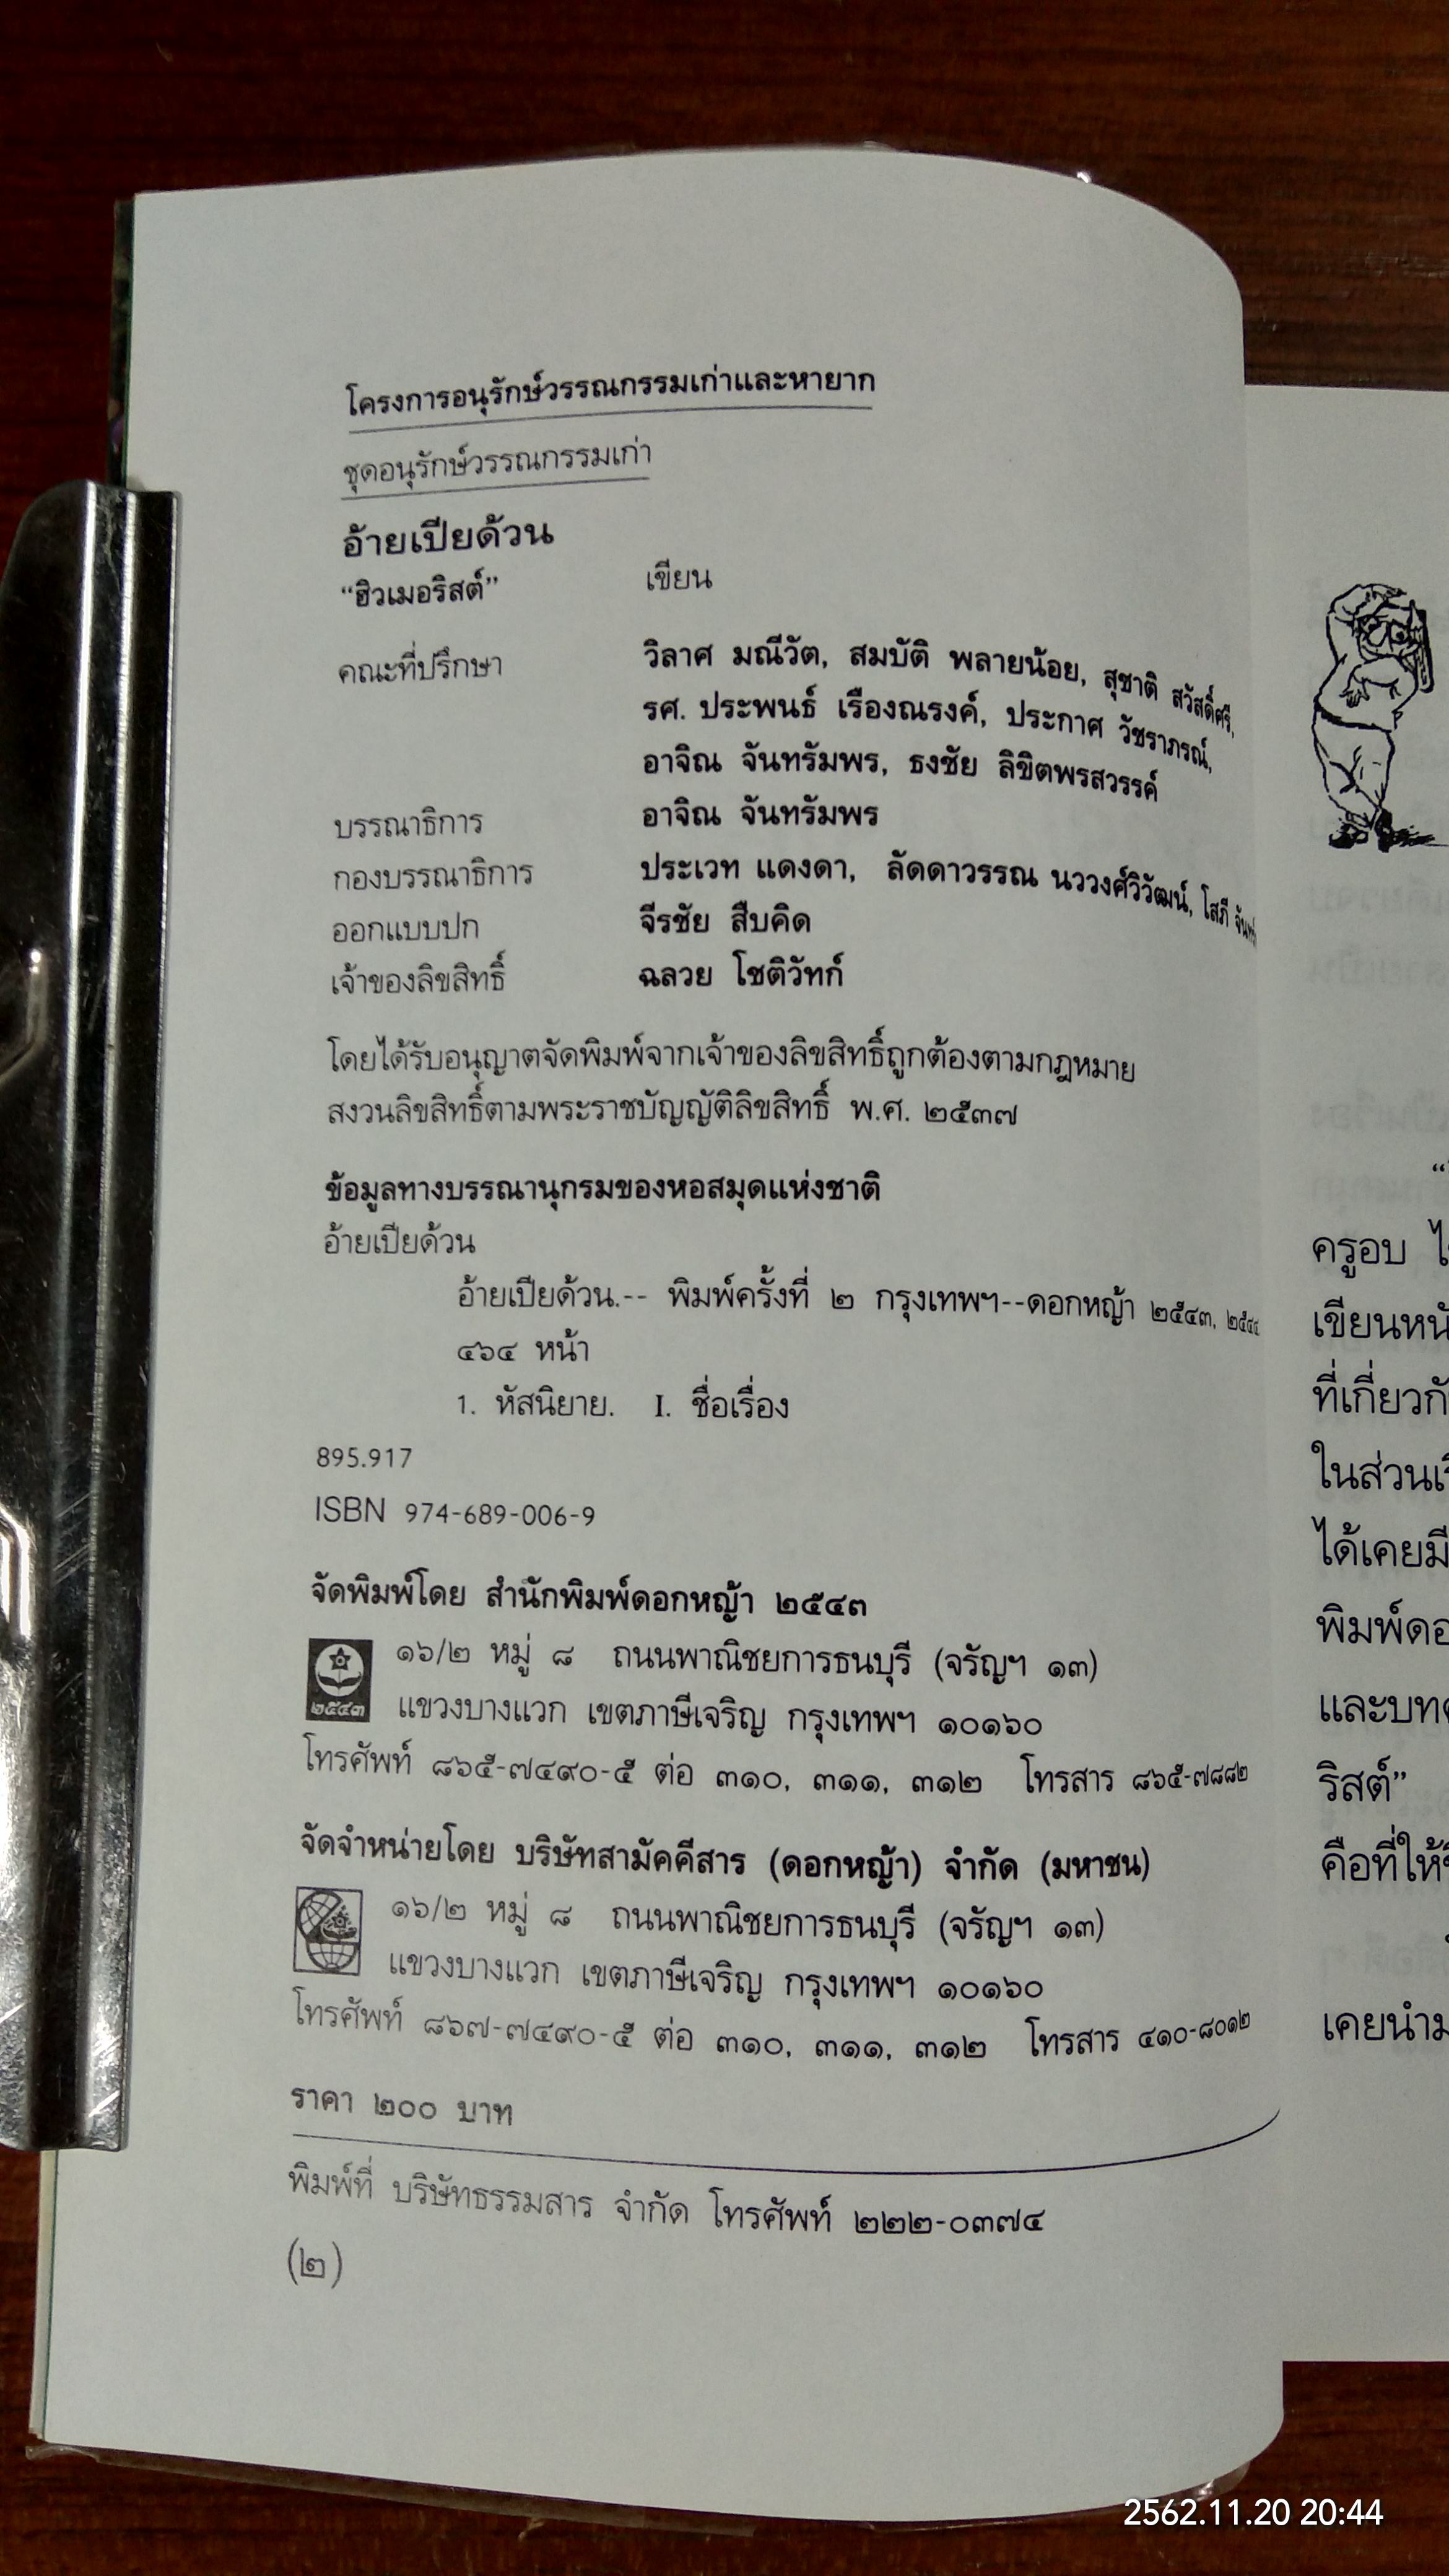 โครงการอนุรักษ์วรรณกรรมเก่าและหายาก
ชุดอนุรักษ์วรรณกรรมเก่า
อ้ายเปียด้วน
“ฮิวเมอริสต์” เขียน
คณะที่ปรึกษา วิลาศ มณีวัต, สมบัติ พลายน้อย, สุชาติ สวัสดิ์ศรี,
รศ. ประพนธ์ เรืองณรงค์, ประกาศ วัชราภรณ์,
อาจิณ จันทรัมพร, ธงชัย ลิขิตพรสวรรค์
บรรณาธิการ อาจิณ จันทรัมพร
กองบรรณาธิการ ประเวท แดงดา, ลัดดาวรรณ นววงศ์วิวัฒน์, โสภี
ออกแบบปก จีรชัย สืบคิด
เจ้าของลิขสิทธิ์ ฉลวย โชติวัทก์
โดยได้รับอนุญาตจัดพิมพ์จากเจ้าของลิขสิทธิ์ถูกต้องตามกฎหมาย
สงวนลิขสิทธิ์ตามพระราชบัญญัติลิขสิทธิ์ พ.ศ. ๒๕๓๗
ข้อมูลทางบรรณานุกรมของหอสมุดแห่งชาติ
อ้ายเปียด้วน
อ้ายเปียด้วน.-- พิมพ์ครั้งที่ ๒ กรุงเทพฯ--ดอกหญ้า ๒๕๔๓, ๒๕๔๔
๔๖๔ หน้า
1. หัสนิยาย. I. ชื่อเรื่อง
895.917
ISBN 974-689-006-9
จัดพิมพ์โดย สำนักพิมพ์ดอกหญ้า ๒๕๔๓
๒๕๔๓
๑๖/๒ หมู่ ๘ ถนนพาณิชยการธนบุรี (จรัญฯ ๑๓)
แขวงบางแวก เขตภาษีเจริญ กรุงเทพฯ ๑๐๑๖๐
โทรศัพท์ ๘๖๕-๗๔๙๐-๕ ต่อ ๓๑๐, ๓๑๑, ๓๑๒ โทรสาร ๘๖๕-๗๘๘๒
จัดจำหน่ายโดย บริษัทสามัคคีสาร (ดอกหญ้า) จำกัด (มหาชน)
๑๖/๒ หมู่ ๘ ถนนพาณิชยการธนบุรี (จรัญฯ ๑๓)
แขวงบางแวก เขตภาษีเจริญ กรุงเทพฯ ๑๐๑๖๐
โทรศัพท์ ๘๖๗-๗๔๙๐-๕ ต่อ ๓๑๐, ๓๑๑, ๓๑๒ โทรสาร ๔๑๐-๘๐๑๒
ราคา ๒๐๐ บาท
พิมพ์ที่ บริษัทธรรมสาร จำกัด โทรศัพท์ ๒๒๒-๐๓๗๔
(๒)
ครูอบ
เขียนหนั
ที่เกี่ยวกั
ในส่วนเ
ได้เคยมี
พิมพ์ดอ
และบท
ริสต์”
คือที่ให้
เคยนำม
2562.11.20 20:44